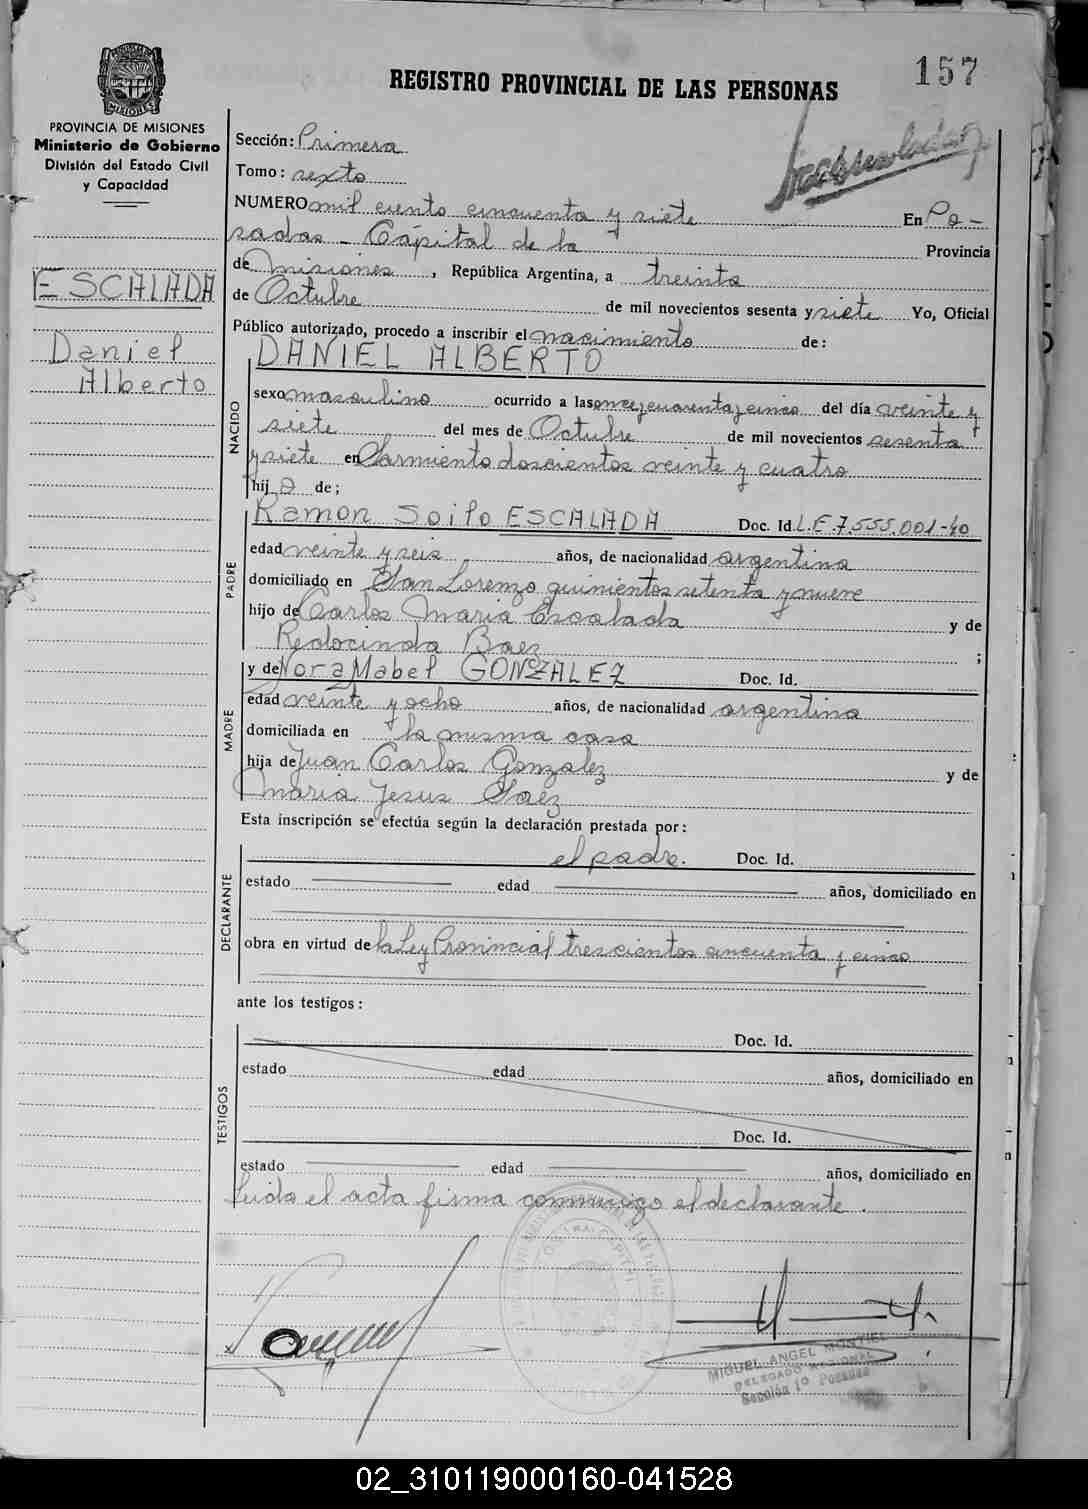 157
REGISTRO PROVINCIAL DE LAS PERSONAS
PROVINCIA DE MISIONES
Ministerio de Gobierno
División del Estado Civil
y Capacidad
ESCALADA
Daniel
Alberto
Sección: Primera
Tomo: sexto
NUMERO mil ciento cincuenta y siete En Po-
sadas - Capital de la Provincia
de Misiones, República Argentina, a treinta
de Octubre de mil novecientos sesenta y siete Yo, Oficial
Público autorizado, procedo a inscribir el nacimiento de:
DANIEL ALBERTO
NACIDO
sexo masculino ocurrido a las once y cuarenta y cinco del día veinte y
siete del mes de Octubre de mil novecientos sesenta
y siete en Sarmiento doscientos veinte y cuatro
hijo de;
PADRE
Ramon Soilo ESCALADA Doc. Id. L.E.7.555.001-40
edad veinte y seis años, de nacionalidad argentina
domiciliado en San Lorenzo quinientos setenta y nueve
hijo de Carlos Maria Escalada y de
Redocinda Baez ;
MADRE
y de Nora Mabel GONZALEZ Doc. Id.
edad veinte y ocho años, de nacionalidad argentina
domiciliada en la misma casa
hija de Juan Carlos Gonzalez y de
Maria Jesus Saez
Esta inscripción se efectúa según la declaración prestada por:
DECLARANTE
el padre. Doc. Id.
estado edad años, domiciliado en
obra en virtud de la Ley Provincial trescientos cincuenta y cinco
ante los testigos:
TESTIGOS
Doc. Id.
estado edad años, domiciliado en
Doc. Id.
estado edad años, domiciliado en
Leida el acta firma conmigo el declarante.
MIGUEL ANGEL MONTIEL
DELEGADO REGIONAL
Sección 1º Posadas
02_310119000160-041528